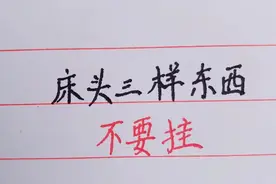 床头三样东西
不要挂